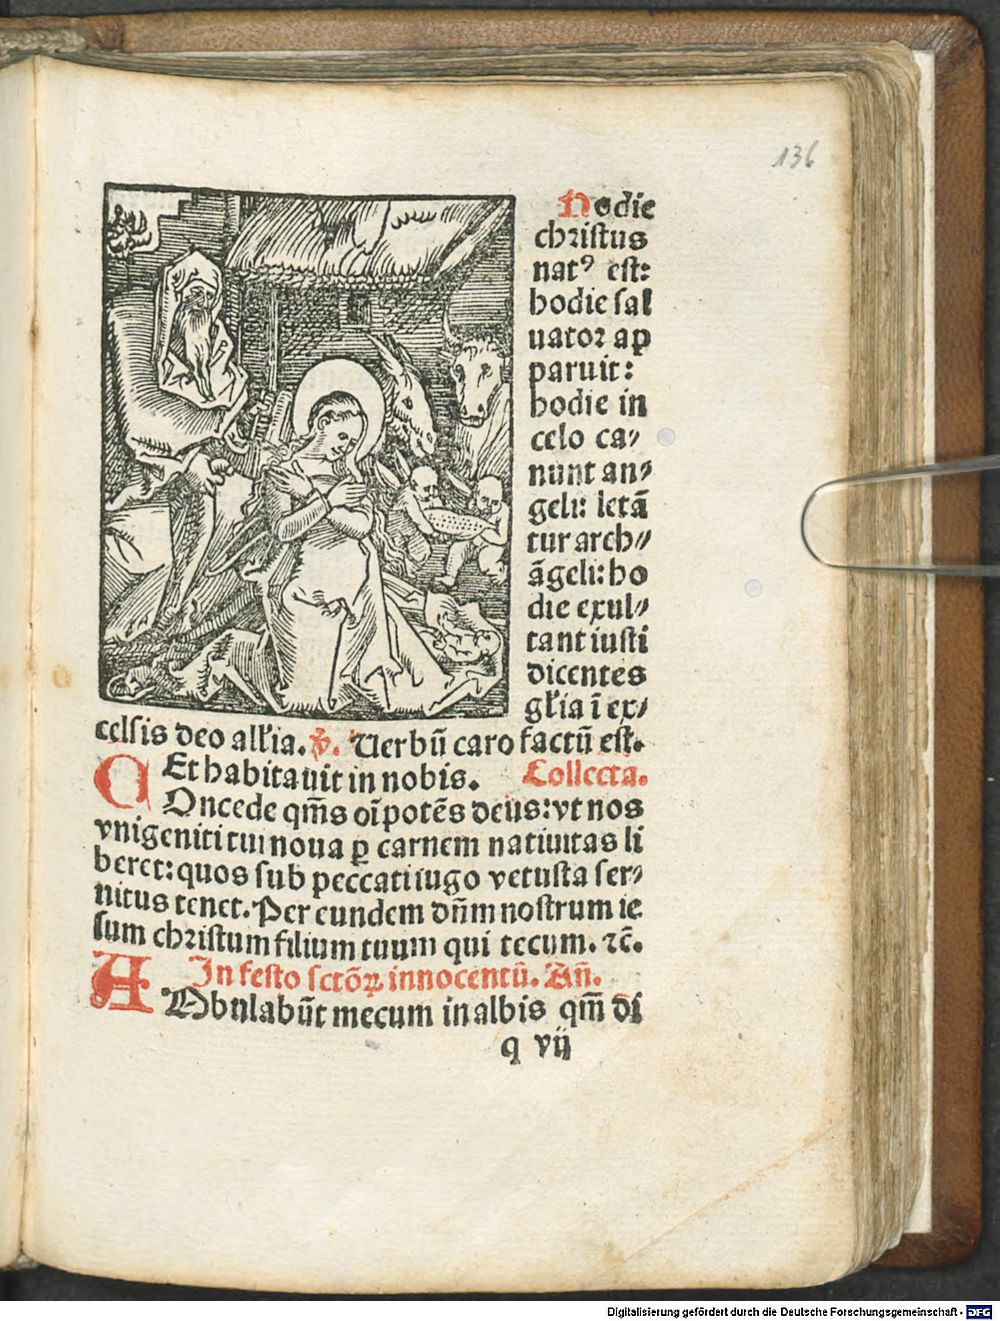 136
Hodie
christus
nat⁹ est:
hodie sal
uator ap
paruit:
hodie in
celo ca⸗
nunt an⸗
geli: letã
tur arch⸗
ãgeli: ho
die exul⸗
tant iusti
dicentes
gl̃ia ĩ ex⸗
celsis deo all̃ia. ℣. Uerbũ caro factũ est.
Et habitauit in nobis. Collecta.
COncede qm̃s oĩpotẽs deus: vt nos
vnigeniti tui noua ꝑ carnem natiuitas li
beret: quos sub peccati iugo vetusta ser⸗
uitus tenet. Per eundem dñm nostrum ie
sum christum filium tuum qui tecum. ⁊c̃.
In festo sctõꝝ innocentũ. Añ.
AMbulabũt mecum in albis qm̃ dĩ
q vij
Digitalisierung gefördert durch die Deutsche Forschungsgemeinschaft - DFG